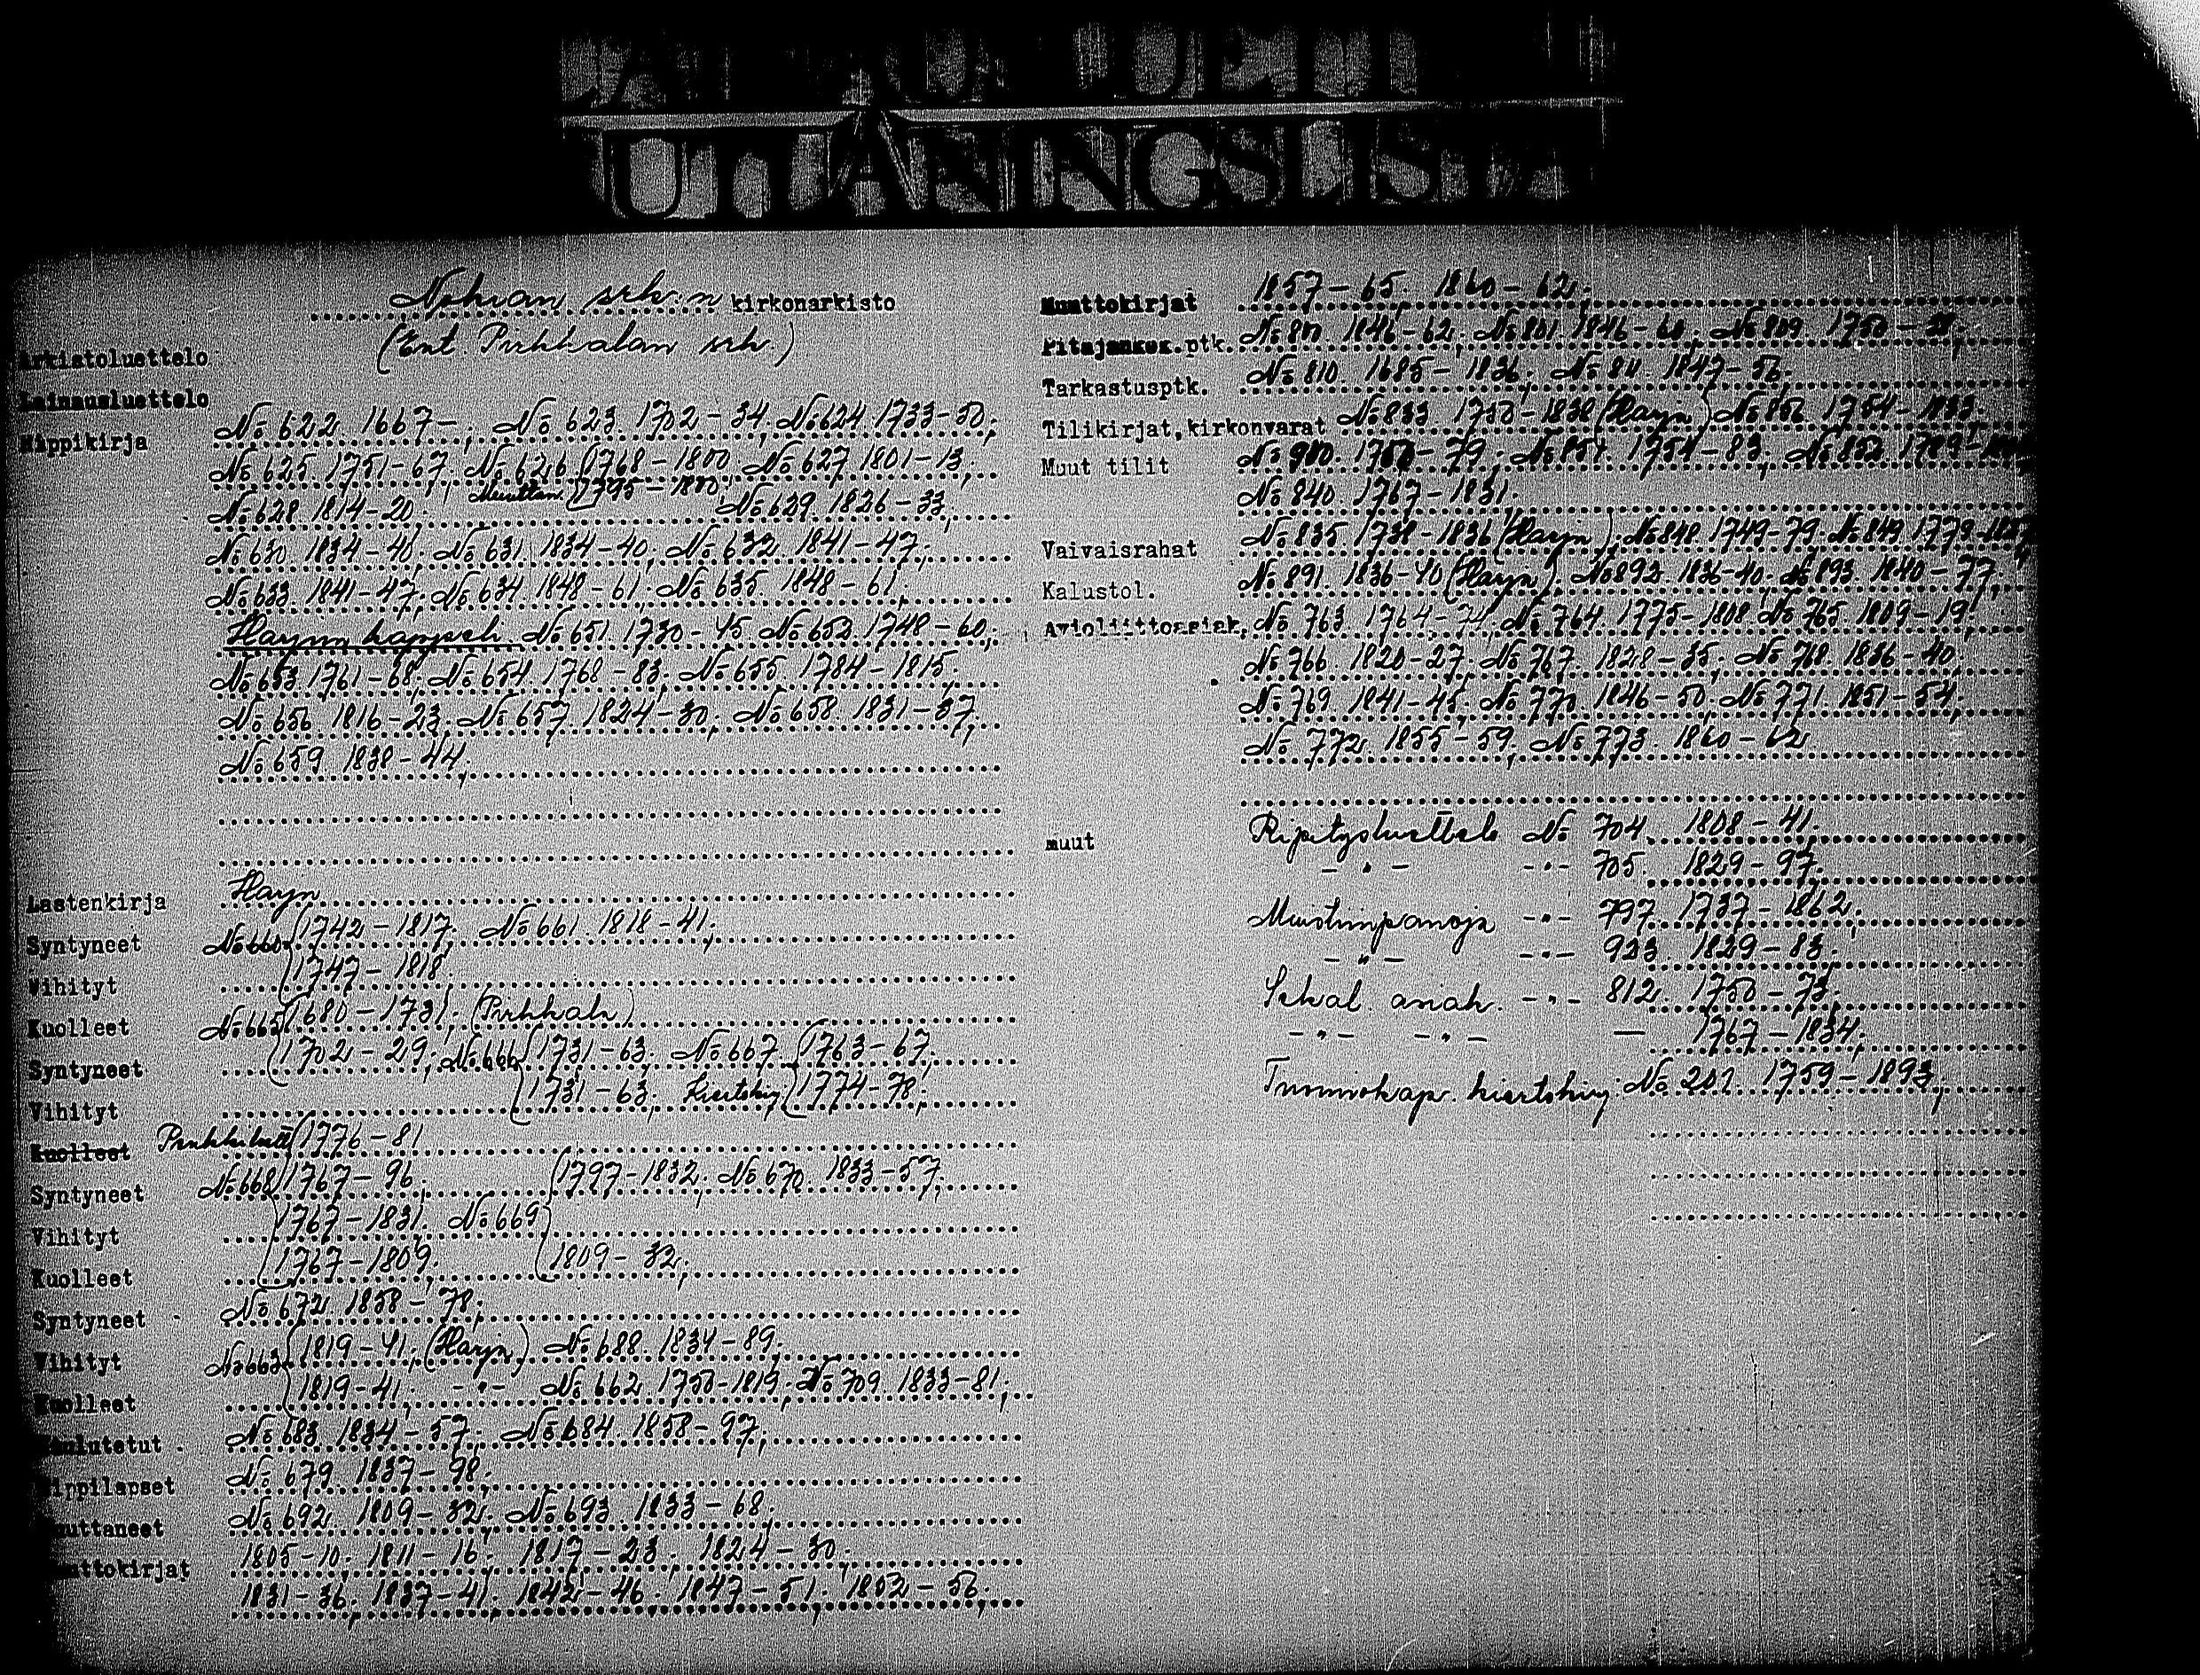 UTLÅNINGSLISTA
Nokian srk:n kirkonarkisto
(Ent. Pirkkalan srk.)
Arkistoluettelo
Lainausluettelo
Rippikirja No 622 1667-; No 623. 1702-34; No 624 1733-50;
No 625 1751-67; No 626 1768-1800; No 627 1801-13;
Muuttan. 1795-1800
No 628 1814-20; No 629 1826-33;
No 630 1834-40; No 631 1834-40; No 632 1841-47;
No 633 1841-47; No 634 1848-61; No 635. 1848-61;
Harjun kappsrk. No 651 1730-45 No 652 1748-60;
No 653 1761-68; No 654 1768-83; No 655 1784-1815;
No 656 1816-23; No 657 1824-30; No 658 1831-37;
No 659 1838-44;
Lastenkirja Harju
Syntyneet No 660 1742-1817; No 661 1818-41;
Vihityt 1747-1818
Kuolleet No 665 1680-1731; (Pirkkala)
Syntyneet 1702-29; No 666 1731-63; No 667 1763-67;
Vihityt 1731-63; Kiertokirj 1774-78;
Kuolleet 1776-81
Syntyneet No 668 1767-96; 1797-1832; No 670 1833-57;
Vihityt 1767-1831; No 669
Kuolleet 1767-1809; 1809-32;
Syntyneet No 672 1858-78;
Vihityt No 663 1819-41; (Harju) No 688. 1834-89;
Kuolleet 1819-41; -"- No 662 1750-1819; No 709 1833-81;
Kuulutetut No 683 1834-57; No 684. 1858-97;
Rippilapset No 679 1837-98;
Muuttaneet No 692 1809-32; No 693 1833-68;
Muuttokirjat 1805-10; 1811-16; 1817-23; 1824-30;
1831-36; 1837-41; 1842-46; 1847-51; 1852-56;
Muuttokirjat 1857-65; 1860-62;
Pitäjänkok.ptk. 1846-62; No 801 1846-60; No 809 1750-38;
Tarkastusptk. No 810 1685-1836; No 811 1847-56;
Tilikirjat,kirkonvarat No 833 1750-1838 (Harju) 1754-1833;
Muut tilit 1754-83;
No 840 1767-1831;
Vaivaisrahat No 835. 1738-1836 (Harju); No 848 1749-79; No 849
Kalustol. No 891. 1836-40 (Harju); No 892. 1836-40; No 893. 1840-77;
Avioliittoasiak. No 763. 1764-74; No 764. 1775-1808; No 765 1809-19
No 766 1820-27; No 767. 1828-35; No 768. 1836-40;
No 769 1841-45; No 770 1846-50; No 771 1851-54;
No 772 1855-59; No 773. 1860-62
muut Ripitysluettelo No 704 1808-41;
-"- -"- 705. 1829-97;
Muistiinpanoja -"- 797 1737-1862;
-"- -"- 923 1829-83;
Sekal. asiak. -"- 812 1750-73;
-"- -"- — 1767-1834;
Tuomiokap. kiertokirj: No 201 1759-1893;